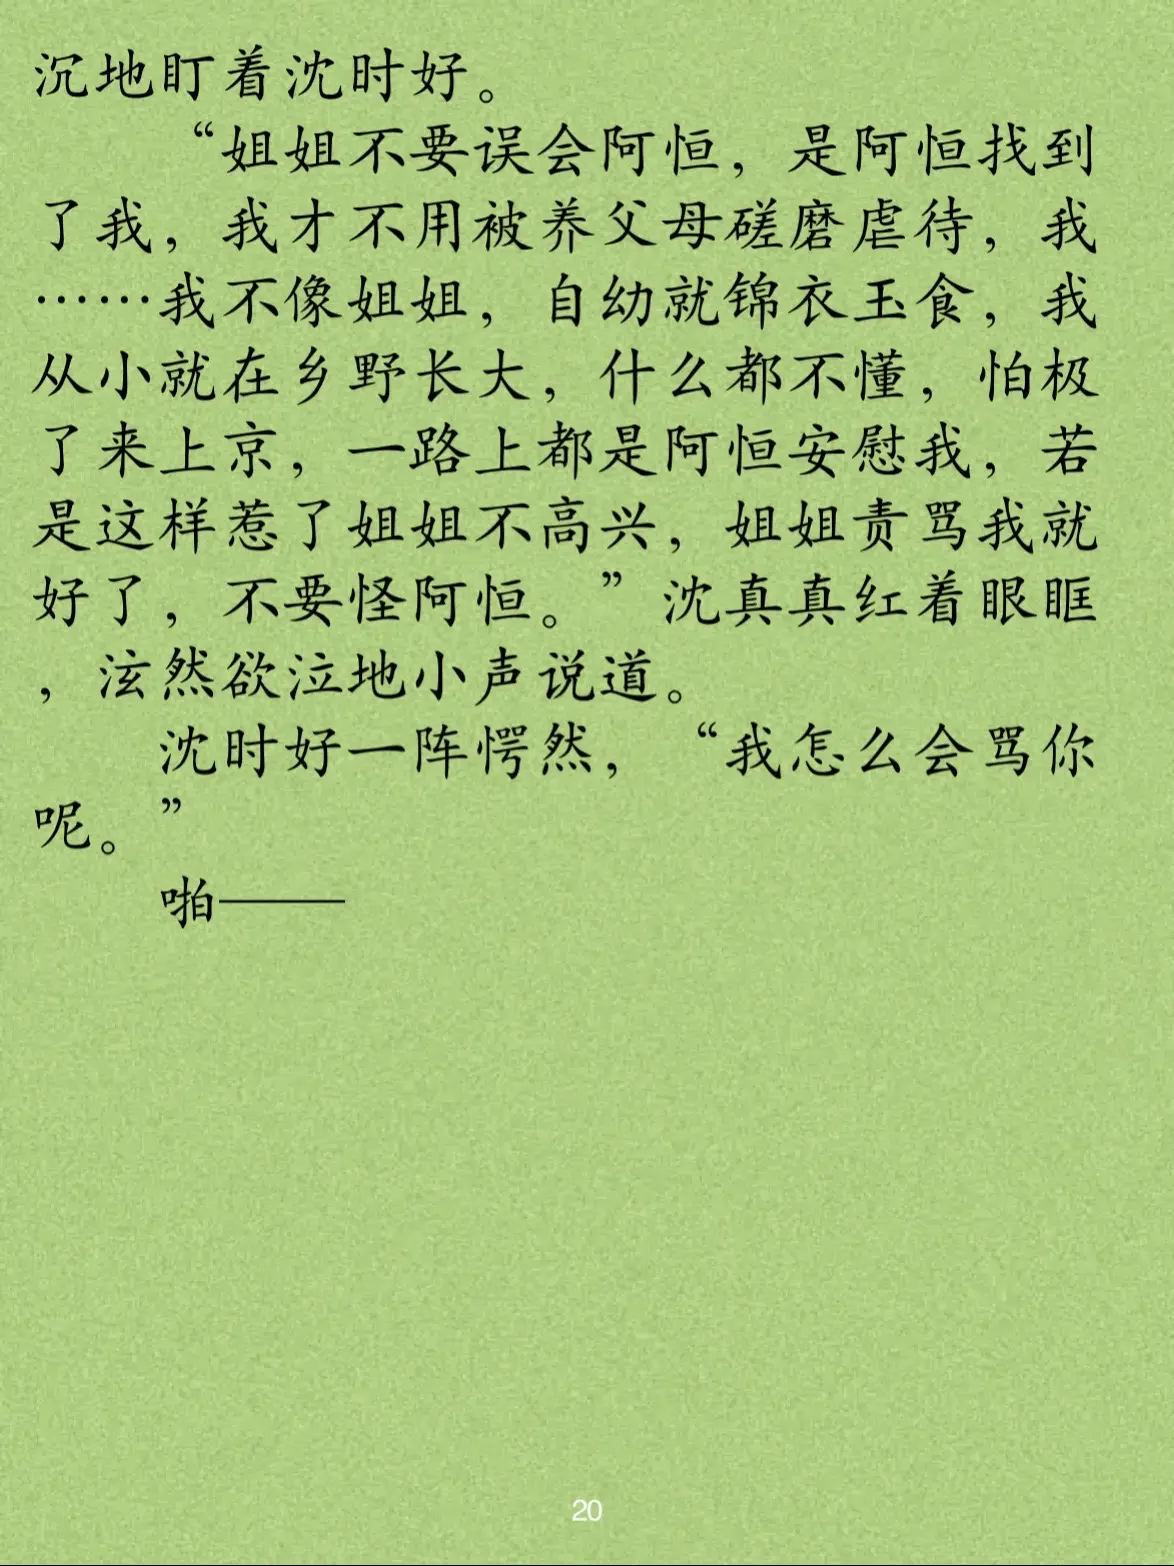 沉地盯着沈时好。
“姐姐不要误会阿恒，是阿恒找到
了我，我才不用被养父母磋磨虐待，我
……我不像姐姐，自幼就锦衣玉食，我
从小就在乡野长大，什么都不懂，怕极
了来上京，一路上都是阿恒安慰我，若
是这样惹了姐姐不高兴，姐姐责骂我就
好了，不要怪阿恒。”沈真真红着眼眶
，泫然欲泣地小声说道。
沈时好一阵愕然，“我怎么会骂你
呢。”
啪——
20